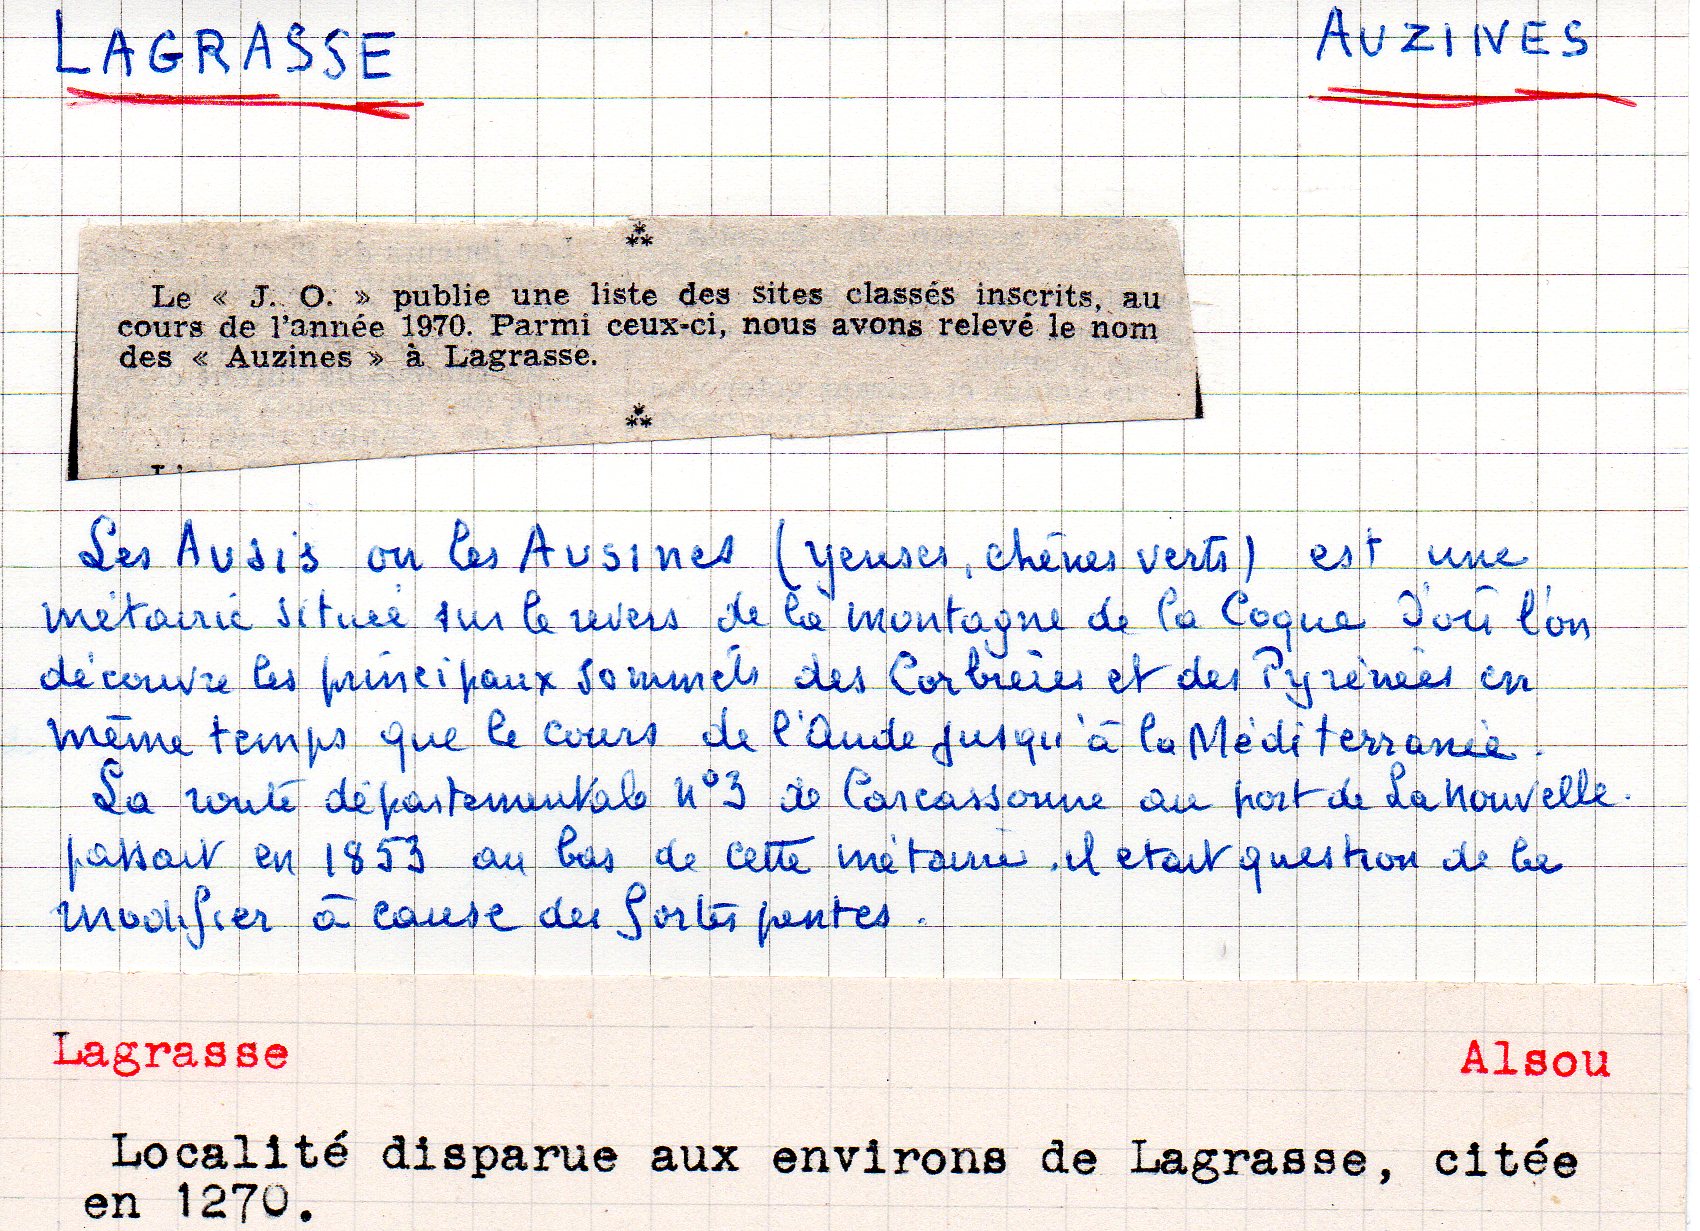 LAGRASSE AUZINES
⁂
Le « J. O. » publie une liste des sites classés inscrits, au
cours de l'année 1970. Parmi ceux-ci, nous avons relevé le nom
des « Auzines » à Lagrasse.
⁂
Les Ausis ou les Ausines (yeuses, chênes verts) est une
métairie située sur le revers de la montagne de la Coque d'où l'on
découvre les principaux sommets des Corbières et des Pyrénées en
même temps que le cours de l'Aude jusqu'à la Méditerranée.
La route départementale n°3 de Carcassonne au port de La Nouvelle.
passait en 1853 au bas de cette métairie. il etait question de la
modifier à cause des fortes pentes.
Lagrasse Alsou
Localité disparue aux environs de Lagrasse, citée
en 1270.